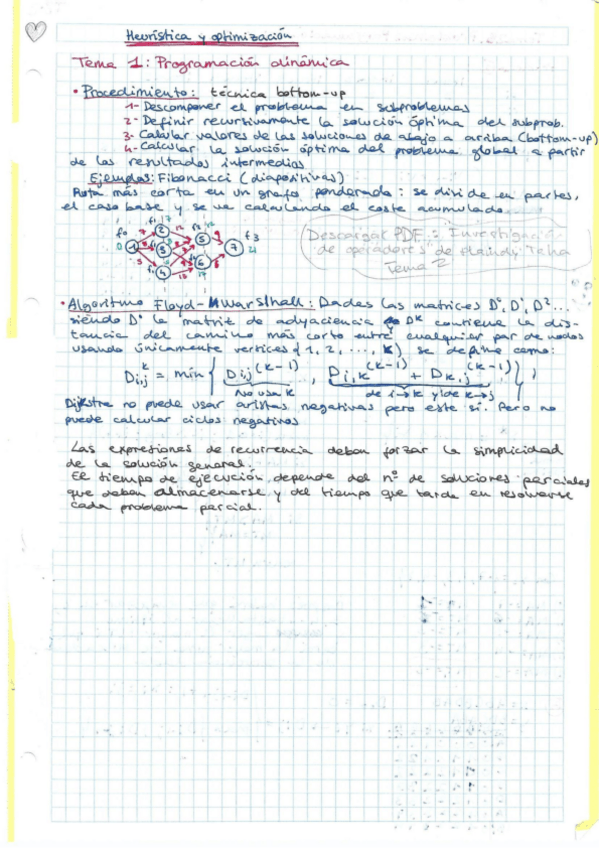 Heurística y optimización
Tema 1: Programación dinámica
• Procedimiento: técnica bottom-up
1- Descomponer el problema en subproblemas
2- Definir recursivamente la solución óptima del subprob.
3- Calcular valores de las soluciones de abajo a arriba (bottom-up)
4- Calcular la solución óptima del problema global a partir
de los resultados intermedios.
Ejemplos: Fibonacci (diapositivas)
Ruta más corta en un grafo ponderado: se divide en partes,
el caso base y se va calculando el coste acumulado.
Descargar PDF: Investigación
de operadores de
Tema 2
1 2 3 4 5 6 7
• Algoritmo Floyd-Warshall: Dadas las matrices D⁰, D¹, D²...
siendo D⁰ la matriz de adyacencia Dᵏ contiene la dis-
tancia del camino más corto entre cualquier par de nodos
usando únicamente vertices {1, 2, ..., k} se define como:
Di,j^k = min { Di,j^(k-1), Di,k^(k-1) + Dk,j^(k-1) }
No usa k de i→k y de k→j
Dijkstra no puede usar aristas negativas pero este sí. Pero no
puede calcular ciclos negativos
Las expresiones de recurrencia deben forzar la simplicidad
de la solución general.
El tiempo de ejecución depende del nº de soluciones parciales
que deban almacenarse y del tiempo que tarda en resolverse
cada problema parcial.